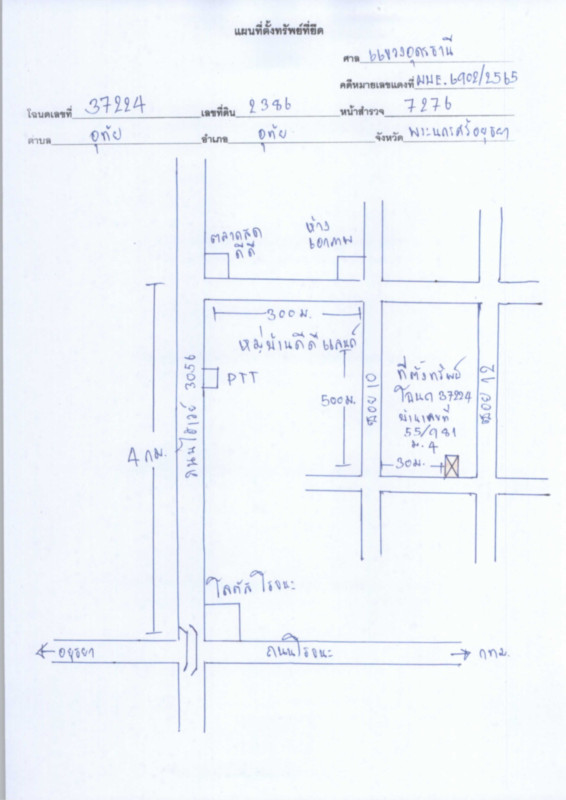 แผนที่ตั้งทรัพย์ที่ยึด
ศาล แขวงอุดรธานี
คดีหมายเลขแดงที่ ผบE.6908/2565
โฉนดเลขที่ 37224 เลขที่ดิน 2386 หน้าสำรวจ 7276
ตำบล อุทัย อำเภอ อุทัย จังหวัด พระนครศรีอยุธยา
ตลาดสด
ดีดี
ห้าง
เอกภาพ
300 ม.
หมู่บ้านดีดีแลนด์
PTT
ถนนโฮเวย์ 3056
4 กม.
500 ม.
ซอย 10
ซอย 12
ที่ตั้งทรัพย์
โฉนด 37224
บ้านเลขที่
55/781
ม. 4
30 ม.
โลตัสโรจนะ
อยุธยา
ถนนโรจนะ
กทม.